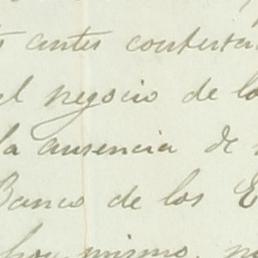 antes contestar
el negocio de lo
la ausencia de
Banco de los E
hoy mismo, no